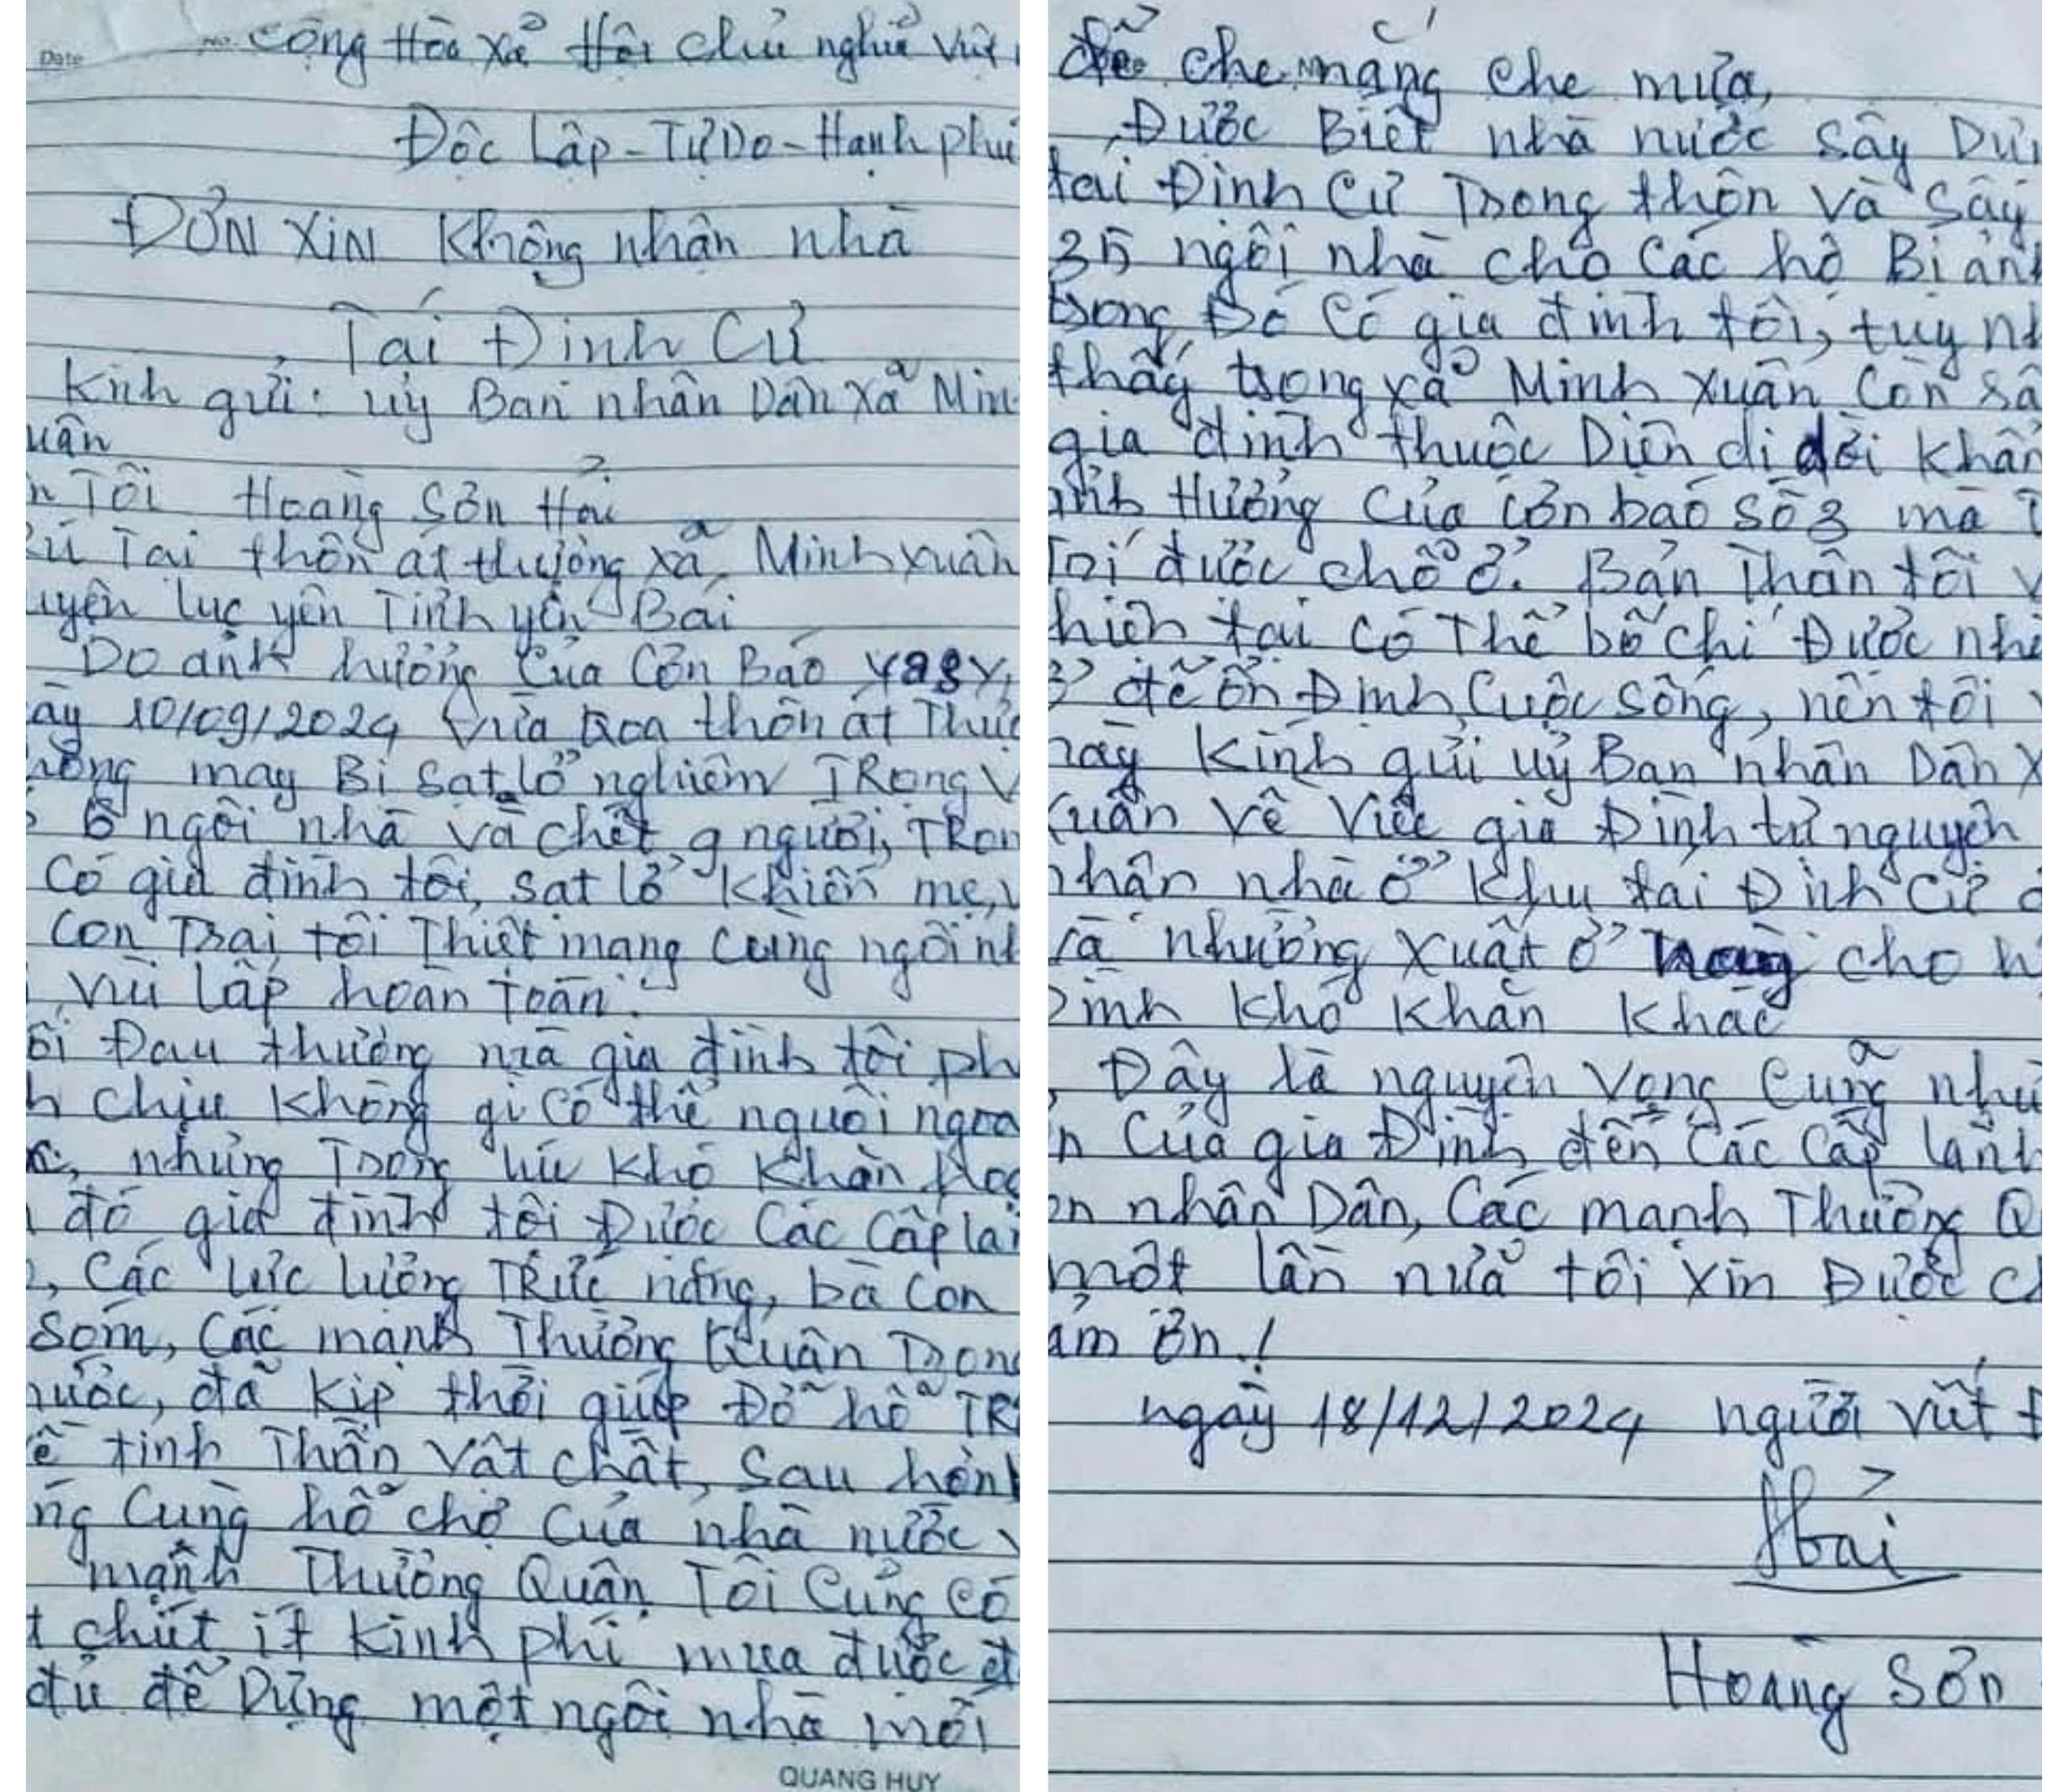 Date No. Cộng Hòa Xả Hội chủ nghiã Việt
Độc Lập - Tự Do - Hạnh phú
ĐƠN XIN Không nhận nhà
Tái Định Cư
Kính gửi: uỷ Ban nhân Dân Xã Min
uân
n Tôi Hoàng Sơn Hải
Rú Tại thôn át thượng xã Minh xuân
uyện lục yên Tỉnh yên Bái
Do ảnh hưởng của Cơn Bảo yagy,
ày 10/09/2024 vừa qoa thôn át Thượ
hông may Bị sạt lở nghiêm TRọng V
6 ngôi nhà và chết 9 người, TRon
Có giá đình tôi, sạt lở khiến mẹ, v
Con Trai tôi Thiệt mạng cùng ngôi nh
vùi lấp hoàn toàn.
ỗi Đau thương mà gia đình tôi ph
h chịu không gì có thể nguôi ngoa
, nhưng Trong lúc khó khăn hoạ
đó gia đình tôi Được Các Cấp lãn
, Các lực lượng TRức năng, bà con
sóm, Các mạnh Thường Quân Trong
nước, đã kịp thời giúp Đỡ hỗ TR
ề tinh Thần vật chất, sau hơn
ng Cùng hỗ chợ của nhà nước v
mạnh Thường Quân Tôi Cũng Có
t chút ít kinh phí mua được đ
đủ để Dựng một ngôi nhà mới
QUANG HUY
để che mắng che mưa,
Được Biết nhà nước Sây Dựn
tái Định Cư Trong thôn và Sây
35 ngôi nhà cho các hộ Bị ảnh
trong Đó Có gia đình tôi, tuy nh
thấy trong xã Minh Xuân Còn Sâ
gia đình thuộc Diện di dời khẩn
ảnh Hưởng Của Cơn bão số 3 mà
Trí được chỗ ở. Bản Thân tôi v
hiện tại Có Thể bố chí Được nhà
ở để ổn Định Cuộc sống, nên tôi v
này kính gửi uỷ Ban nhân Dân X
Xuân Về Việc gia Đình tự nguyện
nhân nhà ở khu tái Định Cư ở
và nhường xuất ở này cho h
Đình khó khăn khác
Đây là nguyện Vọng Cũng như
n Của gia Đình đến Các Cấp lãnh
on nhân Dân, Các mạnh Thường Q
một lần nữa tôi xin Được ch
ảm ơn.!
ngày 18/12/2024 người viết đ
Hải
Hoàng Sơn